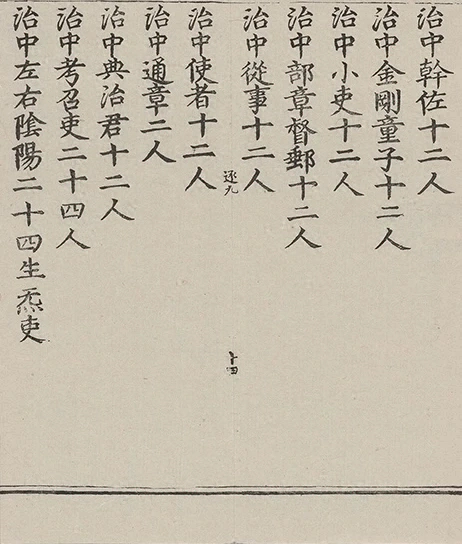 治中幹佐十二人
治中金剛童子十二人
治中小吏十二人
治中部章督郵十二人
治中從事十二人
逐九
十四
治中使者十二人
治中通章二人
治中典治君十二人
治中考召吏二十四人
治中左右陰陽二十四生炁吏